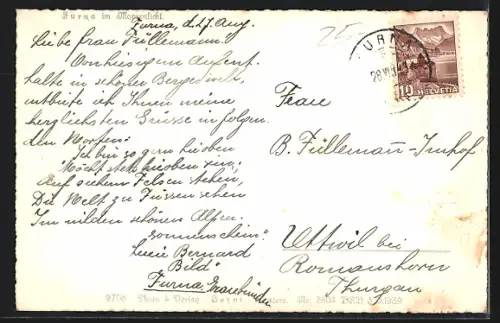 Furna im Morgenlicht.
Furna, d. 27. Aug.
Liebe Frau Füllemann.
Von hiesigem Aufent-
halte in schöner Bergeswelt,
entbiete ich Ihnen meine
herzlichsten Grüsse in folgen-
den Worten:
Ich bin so gern hieoben
Möcht stets hieoben sein;
Auf sichern Felsen stehen,
Die Welt zu Füssen sehen
Im milden schönen Alpen-
sonnenschein.
Bernard
Bild
Furna, Graubünden
25.-
FURNA
HELVETIA
10
Frau
B. Füllemann-Imhof
Uttwil bei
Romanshorn
Thurgau
9706 Photo & Verlag Berni 1939